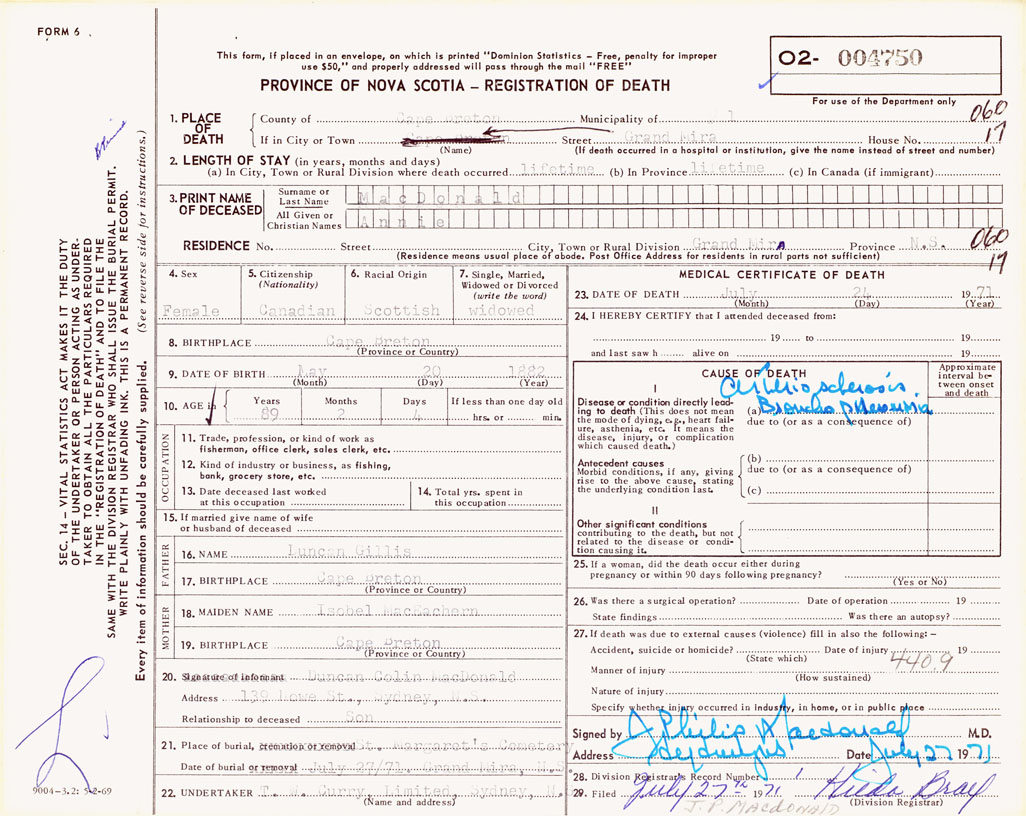 FORM 6
This form, if placed in an envelope, on which is printed "Dominion Statistics – Free, penalty for improper
use $50," and properly addressed will pass through the mail "FREE"
PROVINCE OF NOVA SCOTIA – REGISTRATION OF DEATH
O2- 004750
For use of the Department only
060
17
1. PLACE OF DEATH
County of Cape Breton Municipality of
If in City or Town Street Grand Mira House No.
(Name) (If death occurred in a hospital or institution, give the name instead of street and number)
2. LENGTH OF STAY (in years, months and days)
(a) In City, Town or Rural Division where death occurred lifetime (b) In Province lifetime (c) In Canada (if immigrant)
3. PRINT NAME OF DECEASED
Surname or Last Name MacDonald
All Given or Christian Names Annie
RESIDENCE No. Street City, Town or Rural Division Grand Mira Province N.S.
(Residence means usual place of abode. Post Office Address for residents in rural parts not sufficient)
060
17
4. Sex Female
5. Citizenship (Nationality) Canadian
6. Racial Origin Scottish
7. Single, Married, Widowed or Divorced (write the word) widowed
8. BIRTHPLACE Cape Breton
(Province or Country)
9. DATE OF BIRTH May 20 1882
(Month) (Day) (Year)
10. AGE in Years Months Days If less than one day old
89 2 4 hrs. or min.
OCCUPATION
11. Trade, profession, or kind of work as
fisherman, office clerk, sales clerk, etc.
12. Kind of industry or business, as fishing,
bank, grocery store, etc.
13. Date deceased last worked
at this occupation
14. Total yrs. spent in
this occupation
15. If married give name of wife
or husband of deceased
FATHER
16. NAME Duncan Gillis
17. BIRTHPLACE Cape Breton
(Province or Country)
MOTHER
18. MAIDEN NAME Isobel MacEachern
19. BIRTHPLACE Cape Breton
(Province or Country)
20. Signature of informant Duncan Colin MacDonald
Address 139 Howe St., Sydney, N.S.
Relationship to deceased Son
21. Place of burial, cremation or removal St. Margaret's Cemetery
Date of burial or removal July 27/71. Grand Mira, N.S.
22. UNDERTAKER T. W. Curry Limited, Sydney, N.
(Name and address)
MEDICAL CERTIFICATE OF DEATH
23. DATE OF DEATH July 24 1971
(Month) (Day) (Year)
24. I HEREBY CERTIFY that I attended deceased from:
19 to 19
and last saw h alive on 19
CAUSE OF DEATH
Approximate interval between onset and death
I
Arteriosclerosis
Disease or condition directly leading to death (This does not mean the mode of dying, e.g., heart failure, asthenia, etc. It means the disease, injury, or complication which caused death.)
(a) Broncho pneumonia
due to (or as a consequence of)
Antecedent causes
Morbid conditions, if any, giving rise to the above cause, stating the underlying condition last.
(b)
due to (or as a consequence of)
(c)
II
Other significant conditions
contributing to the death, but not related to the disease or condition causing it.
25. If a woman, did the death occur either during
pregnancy or within 90 days following pregnancy?
(Yes or No)
26. Was there a surgical operation? Date of operation 19
State findings Was there an autopsy?
27. If death was due to external causes (violence) fill in also the following: –
Accident, suicide or homicide? Date of injury 19
(State which) 440.9
Manner of injury
(How sustained)
Nature of injury
Specify whether injury occurred in industry, in home, or in public place
Signed by J Philip Macdonald M.D.
Address Date July 27 1971
28. Division Registrar's Record Number 1
29. Filed July 27th 1971 Hilda Bray
(Division Registrar)
J.P. MACDONALD
SEC. 14 – VITAL STATISTICS ACT MAKES IT THE DUTY
OF THE UNDERTAKER OR PERSON ACTING AS UNDER-
TAKER TO OBTAIN ALL THE PARTICULARS REQUIRED
IN THE "REGISTRATION OF DEATH" AND TO FILE THE
SAME WITH THE DIVISION REGISTRAR WHO SHALL ISSUE THE BURIAL PERMIT.
WRITE PLAINLY WITH UNFADING INK. THIS IS A PERMANENT RECORD.
Every item of information should be carefully supplied. (See reverse side for instructions.)
9004–3.2: 5-2-69